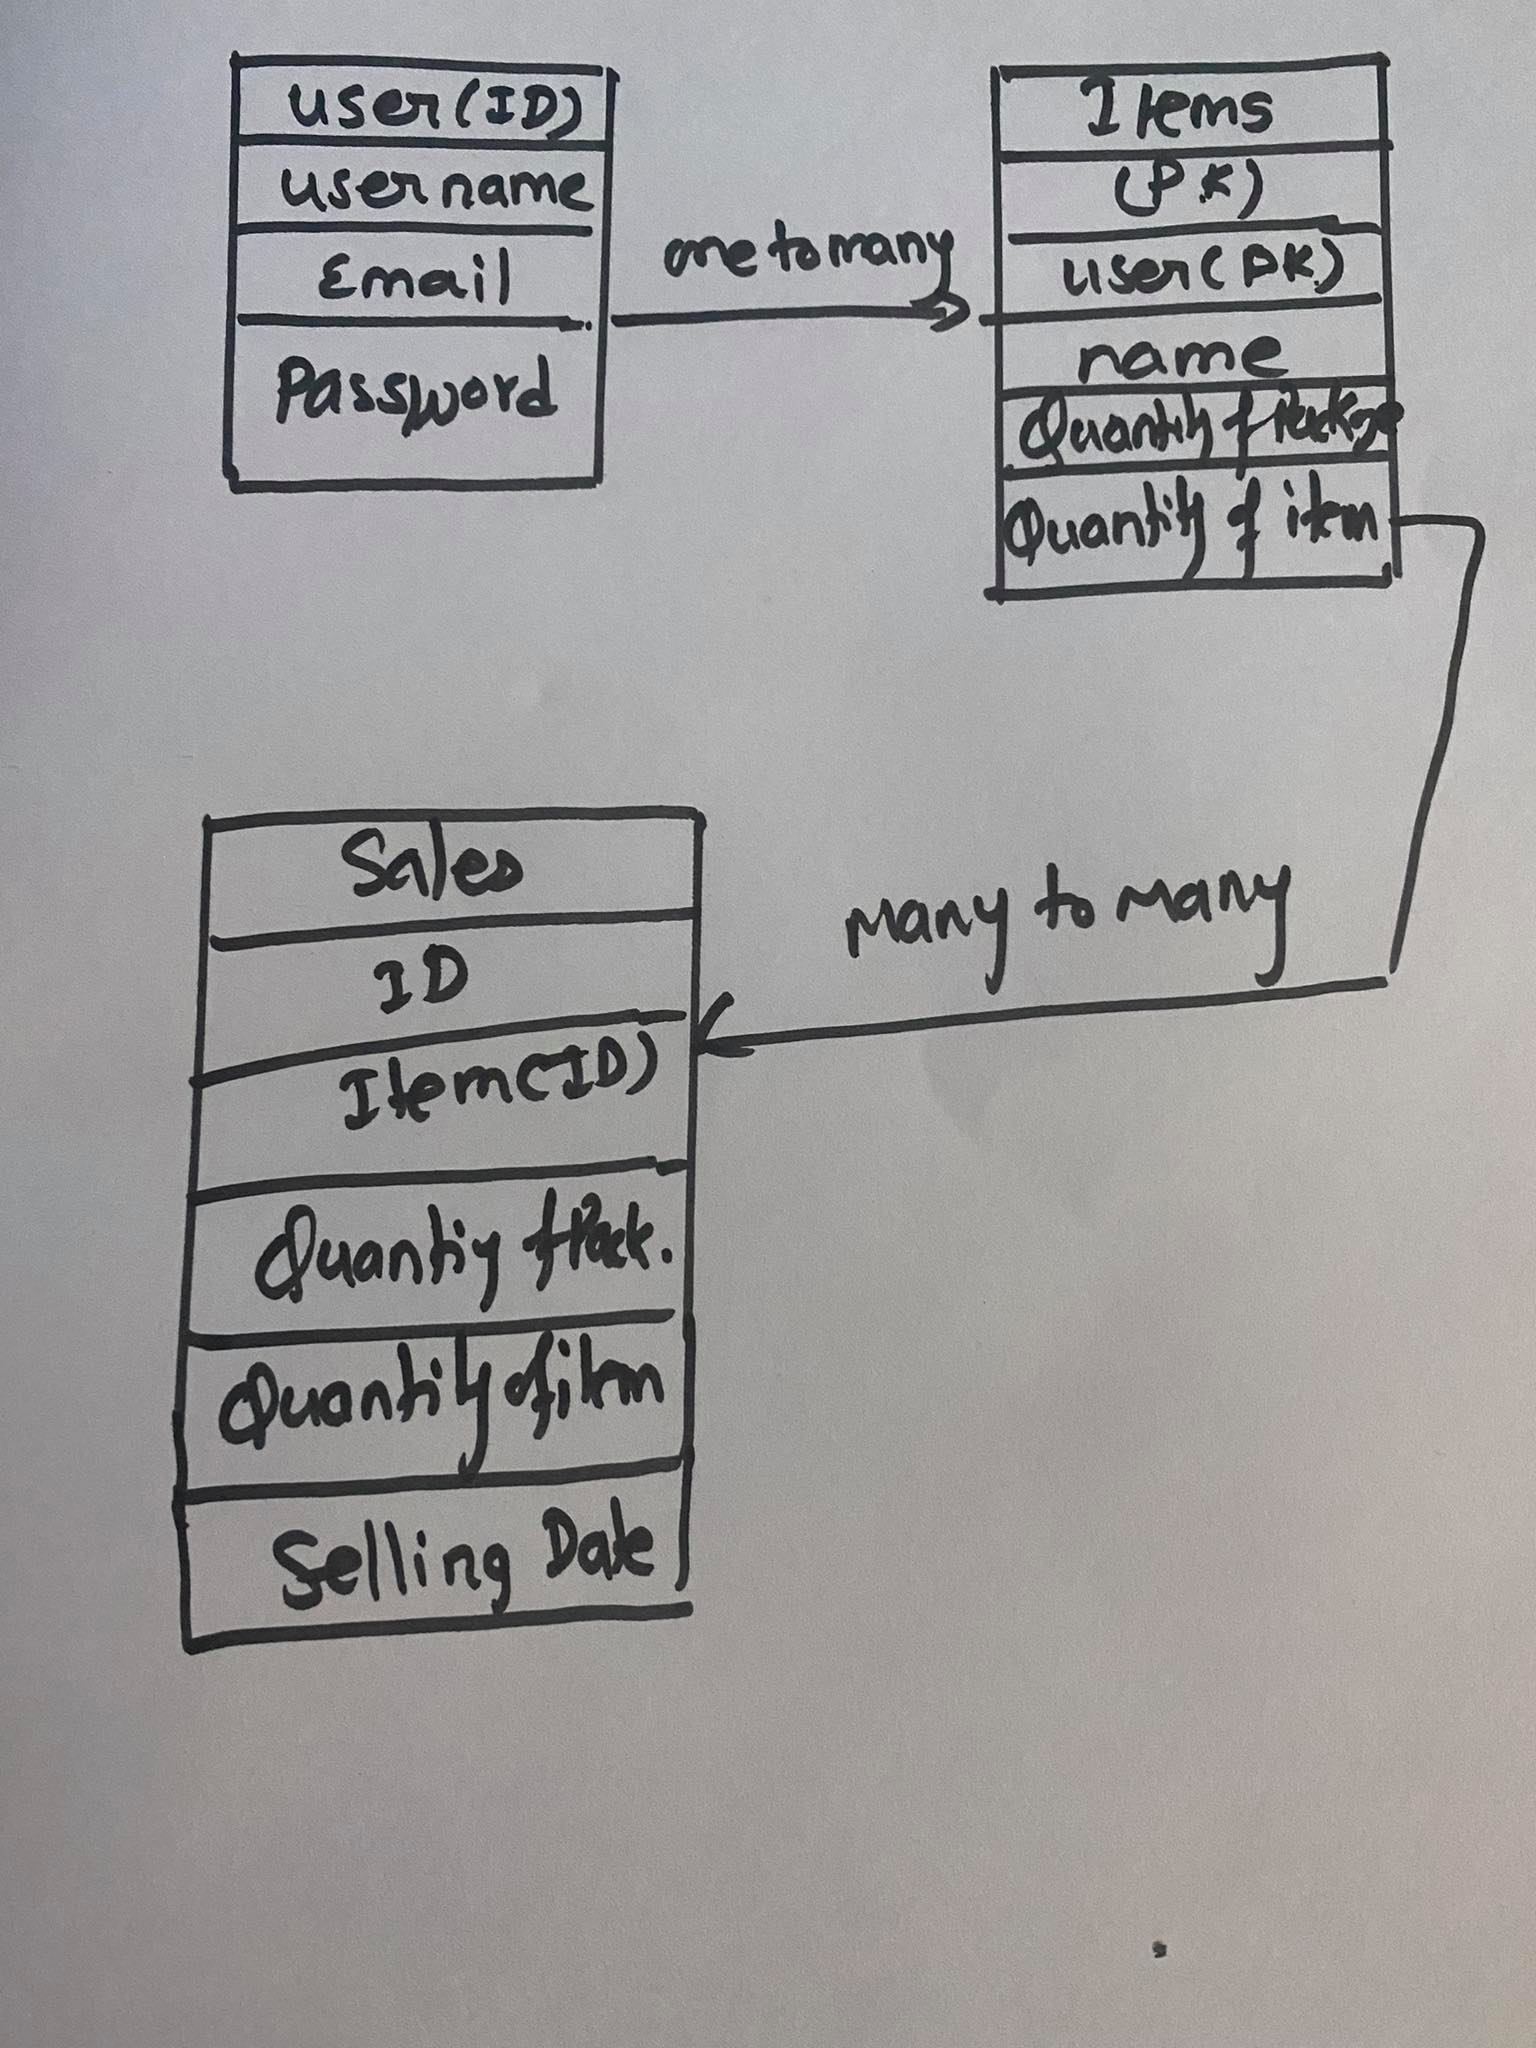 user(ID)
username
Email
Password
one to many
Items
(PK)
user(PK)
name
Quantity of Package
Quantity of item
Many to Many
Sales
ID
Item(ID)
Quantiy of Pack.
Quantity of item
Selling Date